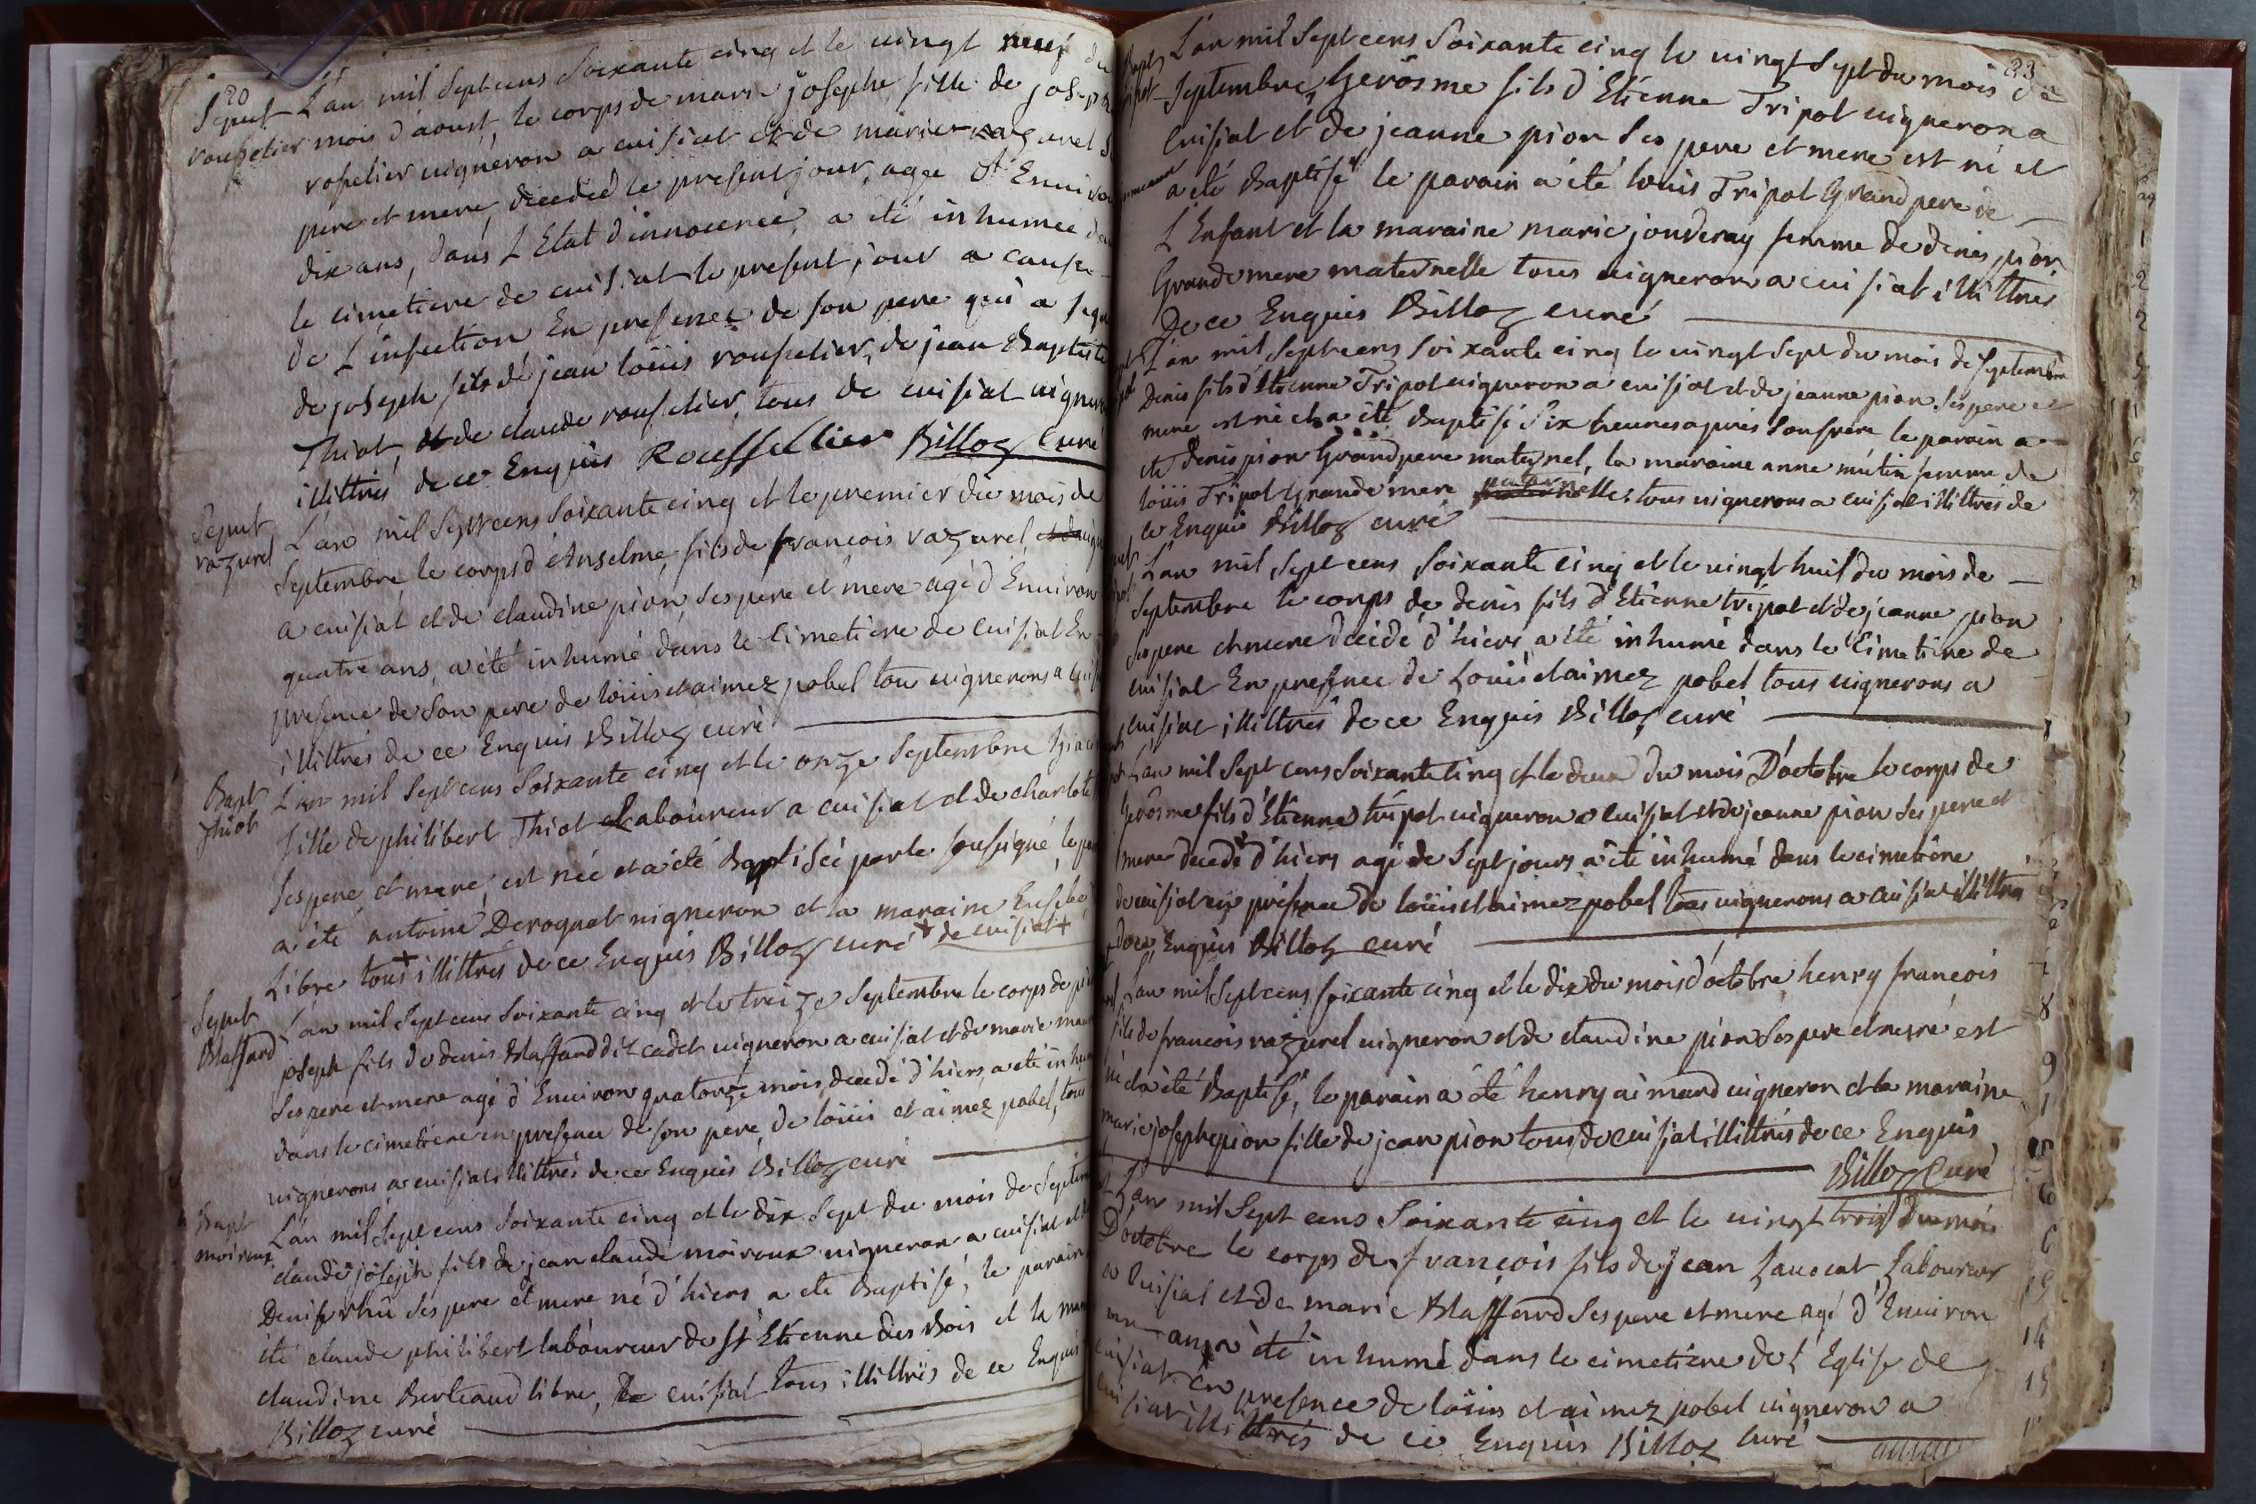 20
Sepult L'an mil Sept cens Soixante cinq et le vingt neuf du
rousselier mois d'aoust, le corps de marie josephe fille de joseph
rosselier vigneron a cuisiat et de marie razurel
pere et mere, décedée le present jour, agée d'Environ
dix ans, dans L'Etat d'innocence, a été inhumée
le cimetiere de cuisiat le present jour a cause
de L'infection En presence de son pere qui a
de joseph fils de jean loüis rousselier, de jean Baptiste
Thiot, de claude rousselier, tous de cuisiat vignerons
illittrés de ce Enquis Roussellier Billoz Curé
Sepult L'an mil Sept cens Soixante cinq et le premier du mois de
razurel Septembre, le corps d'Anselme, fils de francois razurel
a cuisiat et de claudine pion, ses pere et mere agé d'Environ
quatre ans, a été inhumé dans le Cimetiere de Cuisiat En
presence de son pere de loüis et aimez pobel tous vignerons a
illittrés de ce Enquis Billoz curé
Bapt L'an mil Sept cens Soixante cinq et le onze Septembre
Thiot fille de philibert Thiot Laboureur a cuisiat et de charlote
ses pere et mere, est née et a été Baptisée par le soussigné, le
a été antoine Deroquat vigneron et la maraine
Libre tous + illittrés de ce Enquis Billoz curé + de cuisiat +
Sepult L'an mil Sept cens Soixante cinq et le treize Septembre le corps de
Blaffard joseph fils de denis Blaffard dit cadet vigneron a cuisiat et de marie
ses pere et mere agé d'Environ quatorze mois, decedé d'hiers, a été
dans le cimetiere en presence de son pere, de loüis et aimez pobel, tous
vignerons a cuisiat illittrés de ce Enquis Billoz curé
Bapt L'an mil Sept cens Soixante cinq et le dix Sept du mois de
moiroux claude joseph fils de jean claude moiroux vigneron a cuisiat
ses pere et mere né d'hiers a été Baptisé, le parain
été claude philibert laboureur de St Etienne des Bois et la
claudine Berteaud libre, de cuisiat tous illittrés de ce Enquis
Billoz curé
23
L'an mil Sept cens Soixante cinq le vingt Sept du mois de
Septembre, Gerôsme fils d'Etienne Tripot vigneron a
Cuisiat et de jeanne pion ses pere et mere est né et
a été Baptisé le parain a été louis Tripot Grand pere de
L'Enfant et la maraine marie jouveray femme de denis pion
Grande mere maternelle tous vignerons a cuisiat illittrés
de ce Enquis Billoz curé
L'an mil Sept cens Soixante cinq le vingt Sept du mois de Septembre
Denis fils d'Etienne Tripot vigneron a cuisiat et de jeanne pion ses pere et
mere est né et a été Baptisé six heures après son frere le parain a
été denis pion Grand pere maternel, la maraine anne mutin femme de
loüis Tripot Grande mere paternelle, tous vignerons a cuisiat illittrés de
ce Enquis Billoz curé
L'an mil Sept cens Soixante cinq et le vingt huit du mois de
Septembre le corps de denis fils d'Etienne tripot et de jeanne pion
ses pere et mere decedé d'hiers, a été inhumé dans le Cimetiere de
cuisiat En presence de Loüis et aimez pobel tous vignerons a
cuisiat illittrés de ce Enquis Billoz curé
L'an mil Sept cens Soixante Cinq et le deux du mois D'octobre le corps de
Gerôsme fils d'Etienne tripot vigneron a Cuisiat et de jeanne pion ses pere et
mere decedé d'hiers agé de Sept jours a été inhumé dans le cimetiere
de cuisiat en presence de loüis et aimez pobel tous vignerons a cuisiat illittrés
de ce Enquis Billoz curé
L'an mil Sept cens soixante cinq et le dix du mois d'octobre henry francois
fils de francois razurel vigneron et de claudine pion ses pere et mere est
né et a été Baptisé, le parain a été henry aimard vigneron et la maraine
marie josephe pion fille de jean pion tous de cuisiat illittrés de ce Enquis
Billoz Curé
L'an mil Sept cens Soixante cinq et le vingt trois du mois
D'octobre le corps de françois fils de jean Lavocat Laboureur
a Cuisiat et de marie Blaffard ses pere et mere agé d'Environ
un an, a été inhumé dans le cimetiere de L'Eglise de
Cuisiat En presence de loüis et aimez pobel vigneron a
Cuisiat illittrés de ce Enquis Billoz Curé